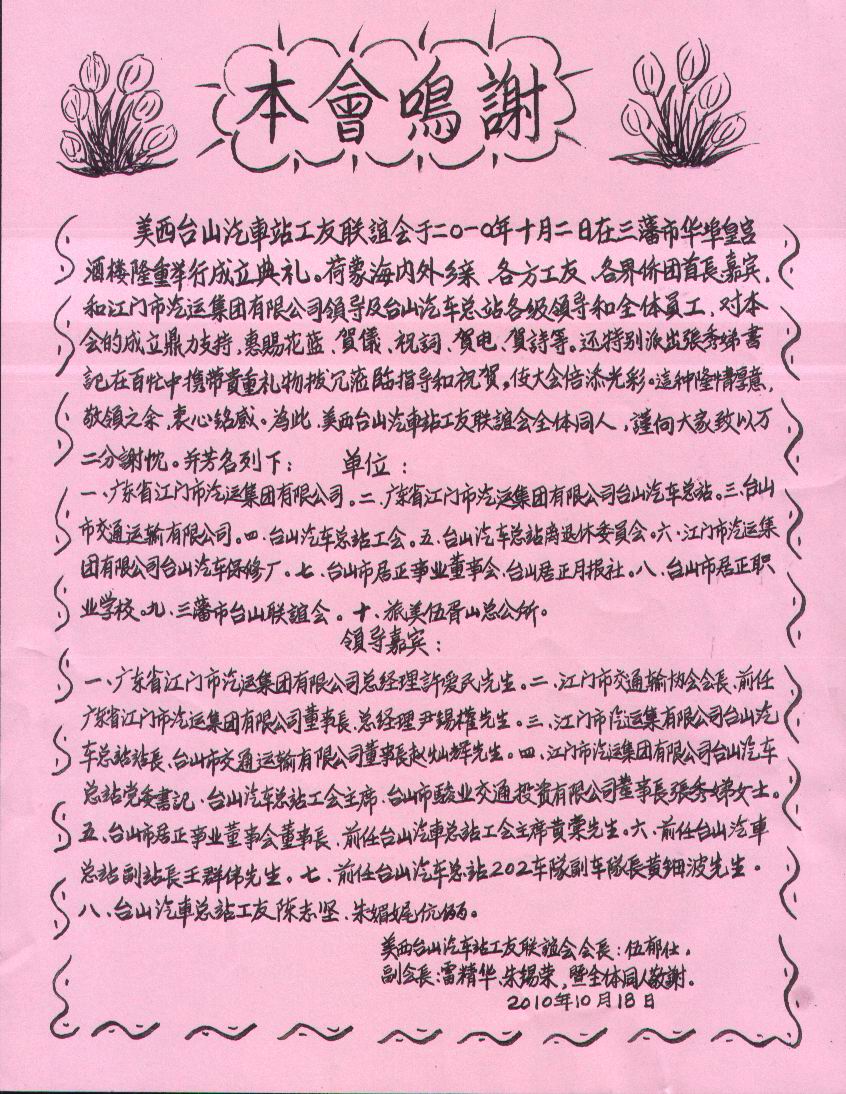 本會鳴謝
美西台山汽車站工友联誼会于二〇一〇年十月二日在三藩市华埠皇宫
酒楼隆重举行成立典礼。荷蒙海内外乡亲、各方工友、各界侨团首長嘉宾,
和江门市汽运集团有限公司領导及台山汽车总站各级領导和全体員工,对本
会的成立鼎力支持,惠賜花篮、賀儀、祝詞、賀电、賀詩等。还特别派出張秀娣書
記在百忙中携带貴重礼物拨冗蒞臨指导和祝賀,使大会倍添光彩。這种隆情厚意,
敬領之余,衷心銘感。為此,美西台山汽車站工友联誼会全体同人,謹向大家致以万
二分謝忱。并芳名列下: 单位:
一、广东省江门市汽运集团有限公司。二、广东省江门市汽运集团有限公司台山汽车总站。三、台山
市交通运输有限公司。四、台山汽车总站工会。五、台山汽车总站离退休委員会。六、江门市汽运集
团有限公司台山汽车保修厂。七、台山市居正事业董事会、台山居正月报社。八、台山市居正职
业学校。九、三藩市台山联誼会。十、旅美伍胥山总公所。
領导嘉宾:
一、广东省江门市汽运集团有限公司总经理許爱民先生。二、江门市交通输协会会長、前任
广东省江门市汽运集团有限公司董事長、总经理尹錫權先生。三、江门市汽运集有限公司台山汽
车总站站長、台山市交通运输有限公司董事長赵灿辉先生。四、江门市汽运集团有限公司台山汽车
总站党委書記、台山汽车总站工会主席、台山市駿业交通投资有限公司董事長張秀娣女士。
五、台山市居正事业董事会董事長、前任台山汽車总站工会主席黄棠先生。六、前任台山汽車
总站副站長王群伟先生。七、前任台山汽车总站202车隊副车隊長黄钿波先生。
八、台山汽車总站工友陳志坚、朱媚娓伉俪。
美西台山汽车站工友联誼会会長:伍郁仕,
副会長:雷精华、朱锡荣,暨全体同人敬謝。
2010年10月18日